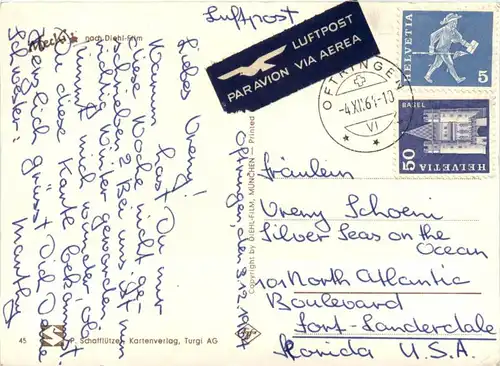 Luftpost
Mecki nach Diehl-Film
LUFTPOST
PAR AVION VIA AEREA
OFTRINGEN
-4.XII.61.-10
VI
HELVETIA
5
BASEL
50
HELVETIA
Oftringen, den 3.12.1961
Liebes Vreny!
Warum hast Du mir
diese Woche nicht ge-
schrieben? Bei uns ist nun
richtig Winter geworden.
Nimmt mich wunder, ob
Du diese Karte bekommst.
Herzlich grüsst Dich Deine
Schwester: Manthy
Copyright by DIEHL-FILM, MÜNCHEN — Printed
Fräulein
Vreny Schoeni
Silver Seas on the
Ocean
101 North Atlantic
Boulevard
Fort-Landerdale
Florida U.S.A.
45
P. Schafflützel, Kartenverlag, Turgi AG